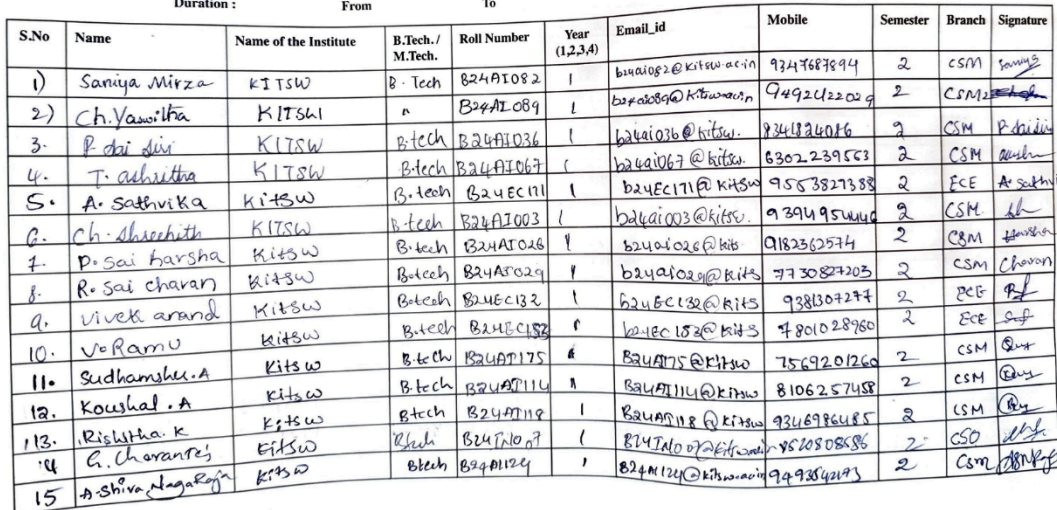 Duration : From To
S.No Name Name of the Institute B.Tech./ M.Tech. Roll Number Year (1,2,3,4) Email_id Mobile Semester Branch Signature
1) Saniya Mirza KITSW B.Tech B24AI082 1 b24ai082@kitsw.ac.in 9347687894 2 CSM Saniya
2) Ch.Yaswitha KITSW " B24AI089 1 b24ai089@kitsw.ac.in 9492422029 2 CSM
3. P. Sai Siri KITSW B.tech B24AI036 1 b24ai036@kitsw. 8341824086 2 CSM P.Sai Siri
4. T. ashritha KITSW B.tech B24AI067 1 b24ai067@kitsw. 6302239563 2 CSM
5. A. Sathvika Kitsw B.tech B24EC171 1 b24EC171@kitsw 9553827388 2 ECE A. Sathvi
6. Ch. Shreehith KITSW B.tech B24AI003 1 b24ai003@kitsw. 2 CSM
7. P. Sai harsha Kitsw B.tech B24AI026 1 b24ai026@kits 9182362574 2 CSM Harsha
8. R. Sai charan Kitsw B.tech B24AI029 1 b24ai029@kits 7730827203 2 CSM Charan
9. Vivek anand Kitsw B.tech B24EC132 1 b24EC132@kits 9381307277 2 ECE
10. V. Ramu Kitsw B.tech B24EC153 1 b24EC153@kits 7801028960 2 ECE
11. Sudhamshu.A Kitsw B.tech B24AI175 B24AI75@Kitsw 7569201260 2 CSM
12. Koushal.A Kitsw B.tech B24AI114 B24AI114@kitsw 8106257458 2 CSM
13. Rishitha.K Kitsw Btech B24AI118 1 B24AI118@kitsw 9346986485 2 CSM
14 G. Kitsw B24IN007 1 B24IN007@kitsw.ac.in 2 CSO
15 A.Shiva NagaRaja Kitsw Btech B24AI124 1 B24AI124@kitsw.ac.in 2 CSM